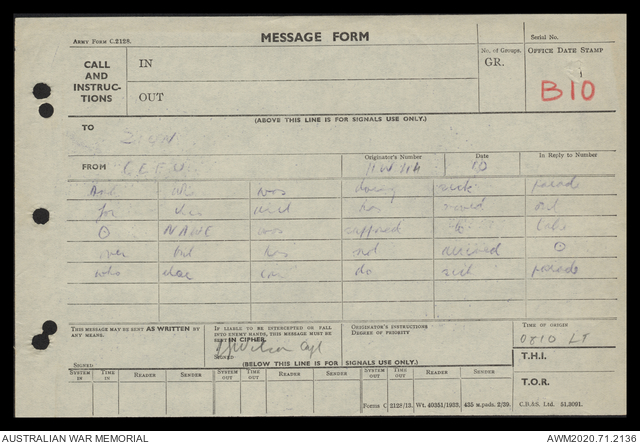 Army Form C.2128.
MESSAGE FORM
Serial No.
CALL AND INSTRUC-TIONS
IN
OUT
No. of Groups.
GR.
OFFICE DATE STAMP
B10
(ABOVE THIS LINE IS FOR SIGNALS USE ONLY.)
TO
FROM
Originator's Number
Date
10
In Reply to Number
who was doing sick parade
for this unit has moved out
⊙ NAWE was supposed to take
over but has not received ⊙
who else can do sick parade
THIS MESSAGE MAY BE SENT AS WRITTEN BY ANY MEANS.
SIGNED
IF LIABLE TO BE INTERCEPTED OR FALL INTO ENEMY HANDS, THIS MESSAGE MUST BE SENT IN CIPHER.
SIGNED
Wilson Capt
ORIGINATOR'S INSTRUCTIONS
DEGREE OF PRIORITY
TIME OF ORIGIN
0810 LT
(BELOW THIS LINE IS FOR SIGNALS USE ONLY.)
T.H.I.
T.O.R.
SYSTEM IN TIME IN READER SENDER SYSTEM OUT TIME OUT READER SENDER SYSTEM OUT TIME OUT READER SENDER
Forms C 2128/13. Wt. 40351/1933. 435 m.pads. 2/39. C.B.&S. Ltd. 51.9091.
AUSTRALIAN WAR MEMORIAL
AWM2020.71.2136